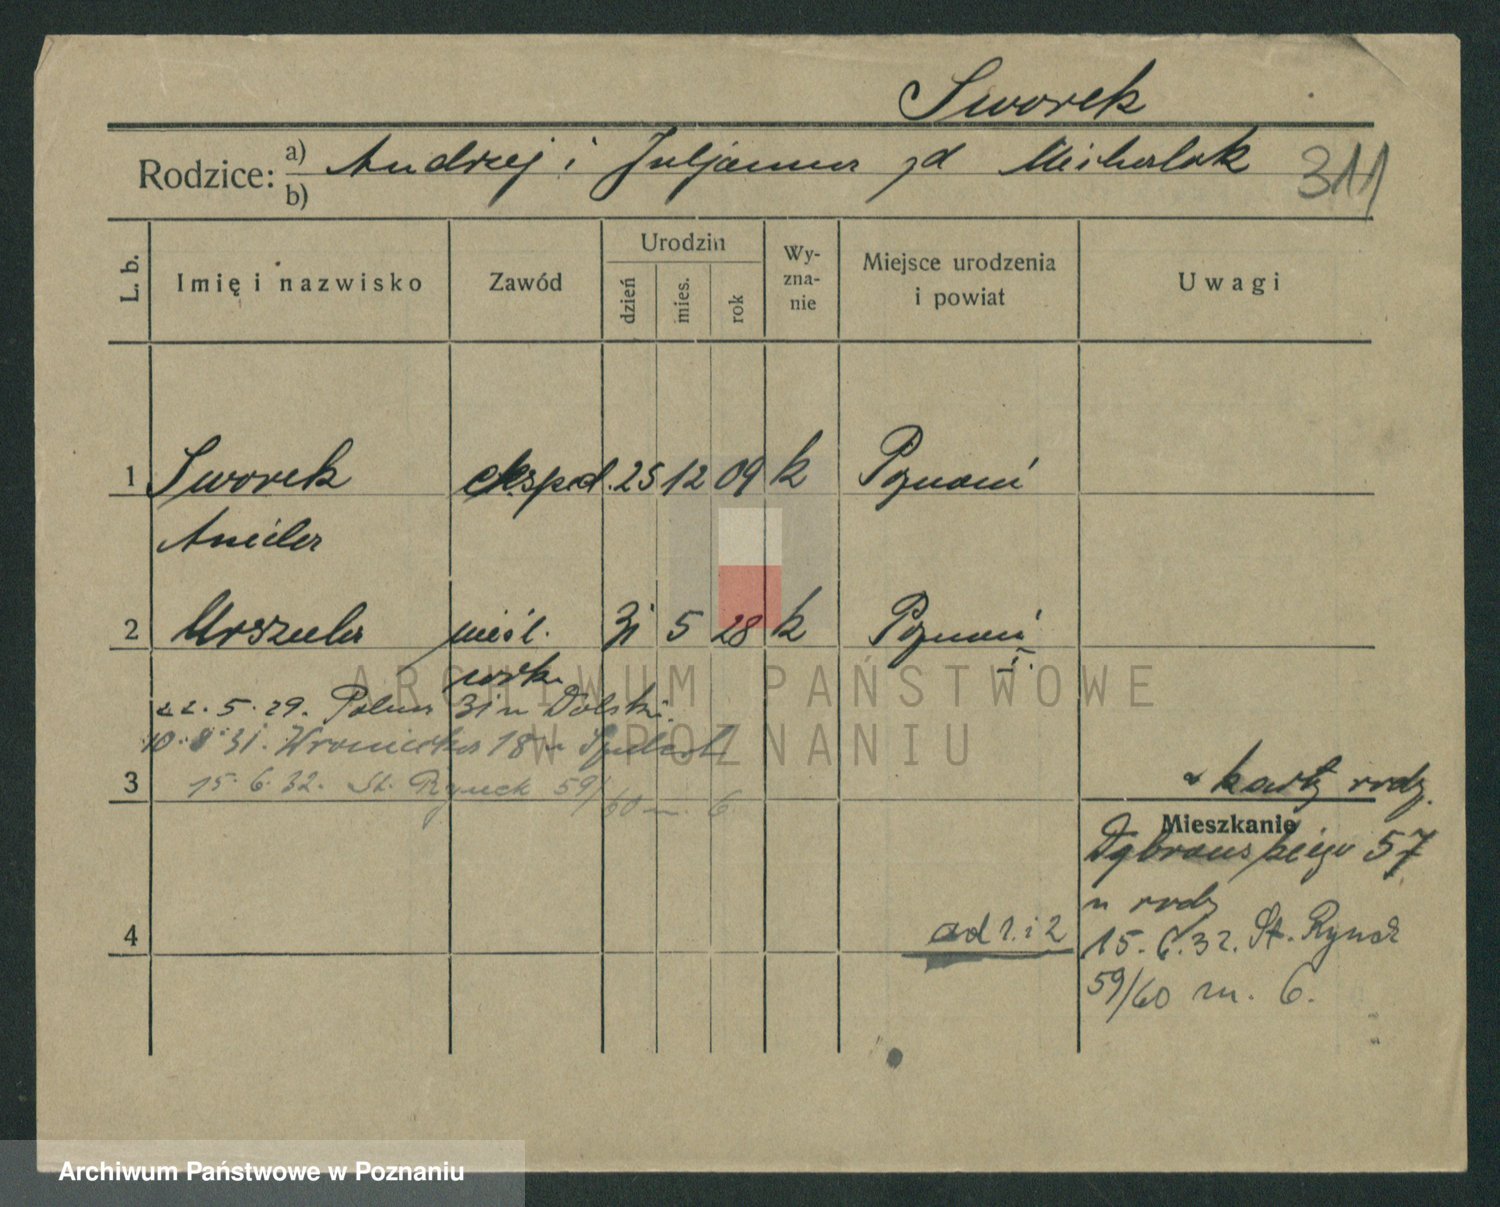 Sworek
Rodzice: a) b) Andrzej i Juljanna zd Michalak 311
L. b. Imię i nazwisko Zawód Urodzin dzień mies. rok Wy-zna-nie Miejsce urodzenia i powiat Uwagi
1 Sworek eksped. 25 12 09 k Poznań
Aniela
2 Urszula nieśl. 31 5 28 k Poznań
22.5.29. Polna 31 u Dolski.
10.8.31. Wroniecka 18
3 15.6.32. St. Rynek 59/60 6
z karty rodz.
Mieszkanie
Dąbrowskiego 57
u rodz
4 ad 1. i 2 15.6.32. St. Rynek
59/60 m. 6.
ARCHIWUM PAŃSTWOWE
W POZNANIU
Archiwum Państwowe w Poznaniu